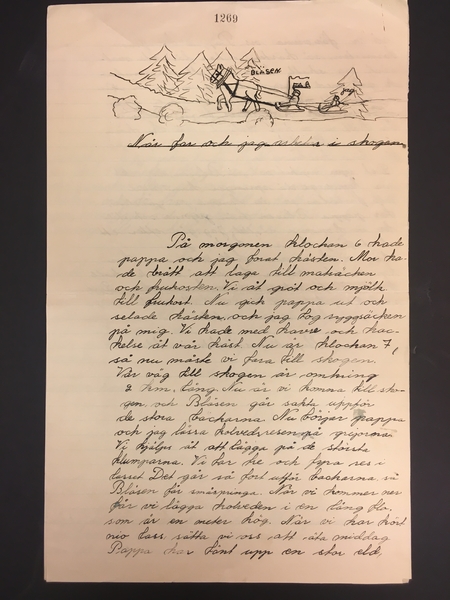 1269
BLÅSEN
FAR
JAG
När far och jag arbetar i skogen
På morgonen klockan 6 hade
pappa och jag forat hästen. Mor ha-
de brått att laga till matsäcken
och frukosten. Vi åt gröt och mjölk
till frukost. Nu gick pappa ut och
selade hästen, och jag tog ryggsäcken
på mig. Vi hade med havre och hac-
kelse åt vår häst. Nu är klockan 7,
så nu måste vi fara till skogen.
Vår väg till skogen är omkring
2 km. lång. Nu är vi komna till sko-
gen, och Blåsen går sakta uppför
de stora backarna. Nu börjar pappa
och jag lässa kolvedsresen på
Vi hjälps åt att lägga på de största
klumparna. Vi tar tre och fyra res i
lasset. Det går så fort utför backarna så
Blåsen får småspringa. När vi kommer ner
får vi lägga kolveden i en lång
som är en meter hög. När vi har kört
nio lass sätta vi oss att äta middag
Pappa har tänt upp en stor eld,